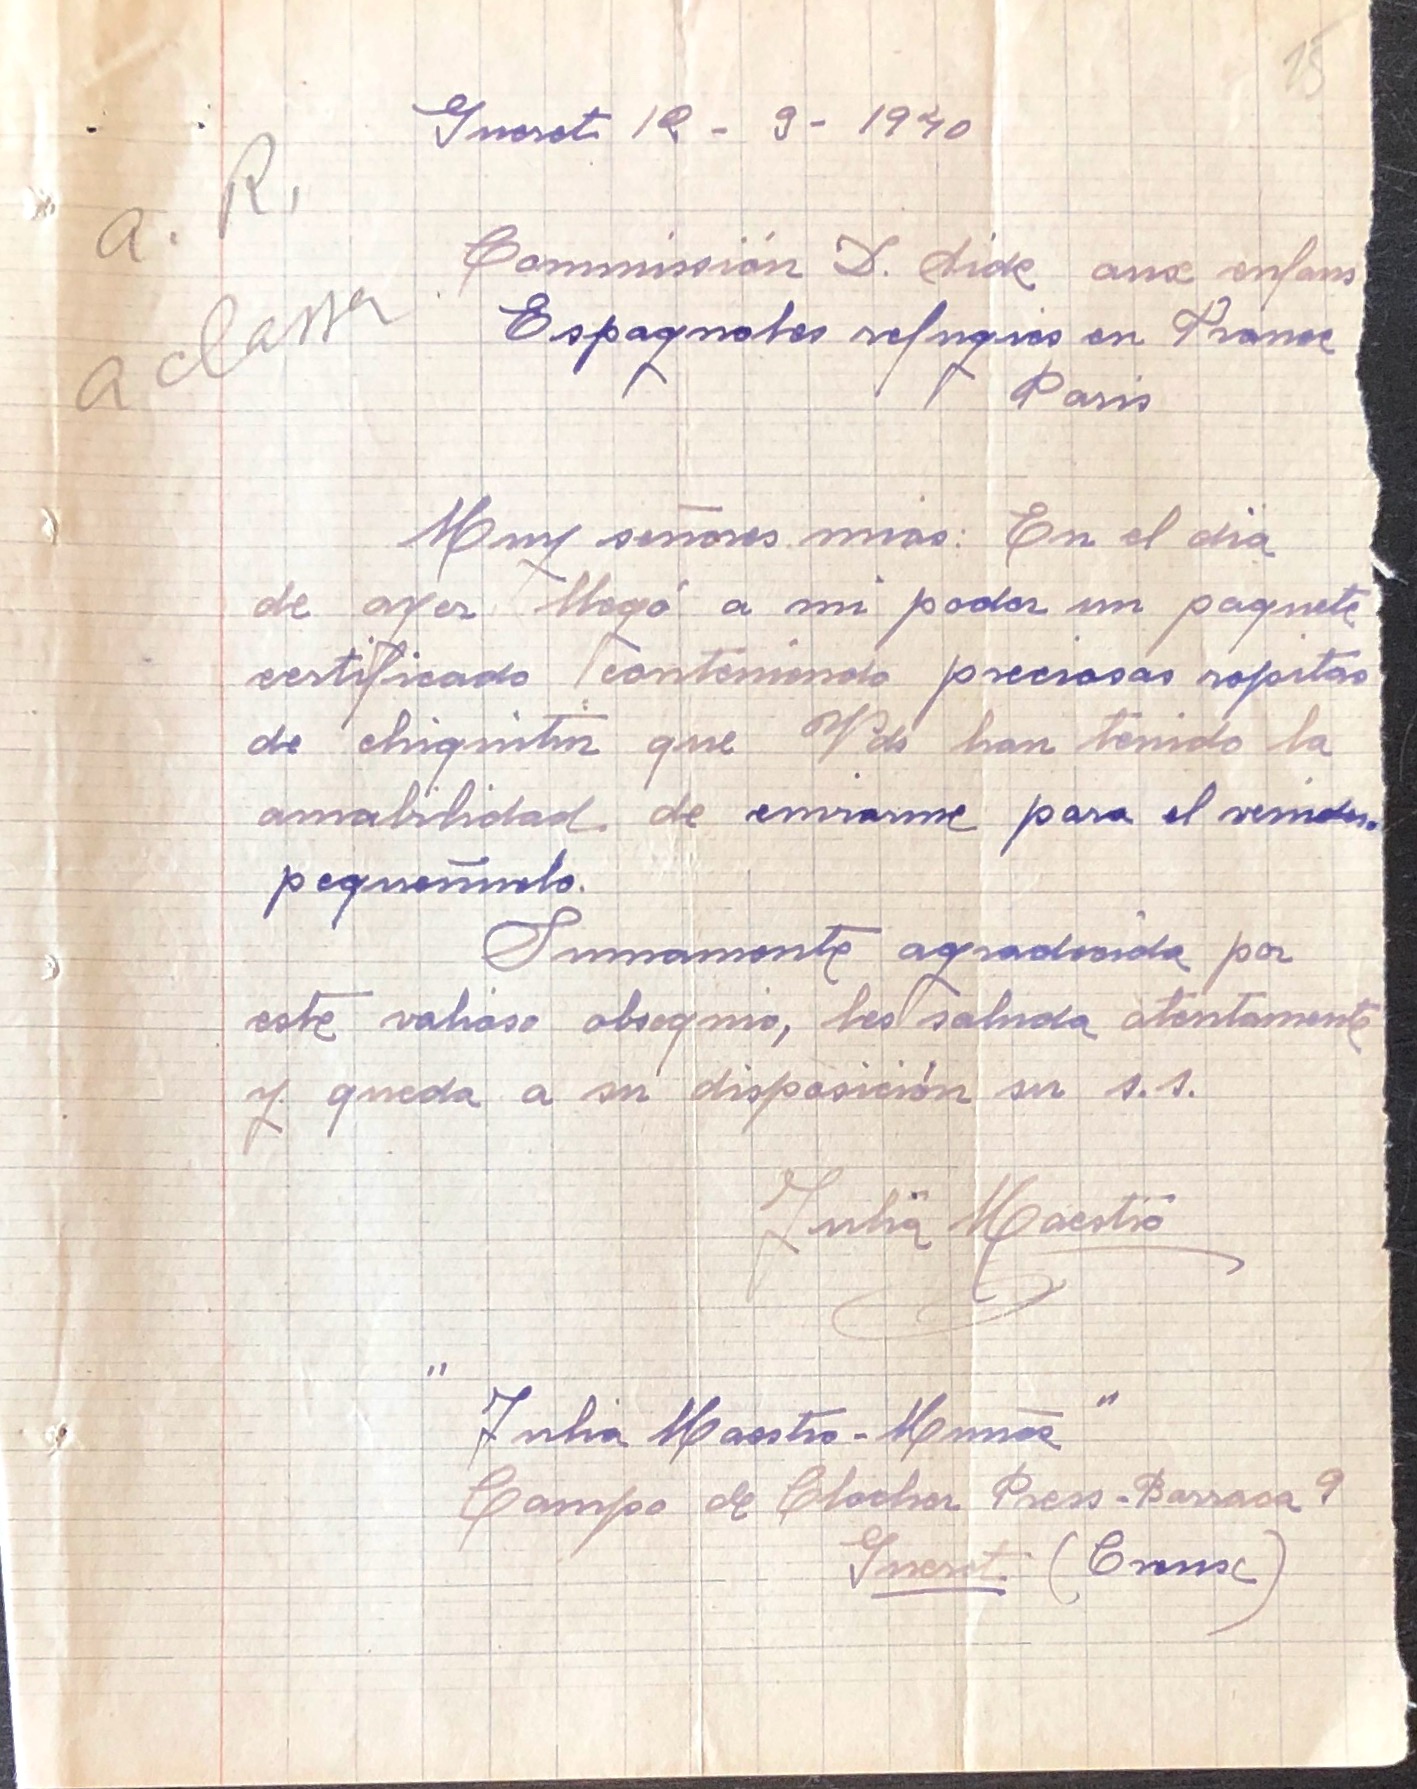 15
Gueret 12 - 9 - 1940
a. R.
a classer
Commissión D. Aide aux enfans
Espagnoles refugies en France
Paris
Muy señores mios: En el dia
de ayer llegó a mi poder un paquete
certificado conteniendo preciosas ropitas
de chiquitin que Vds han tenido la
amabilidad de enviarme para el venidero
pequeñuelo.
Sumamente agradecida por
este valioso obsequio, les saluda atentamente
y queda a su disposición su s.s.
Julia Maestro
"Julia Maestro-Munoz"
Campo de Clocher Press-Barraca 9
Gueret (Creuse)